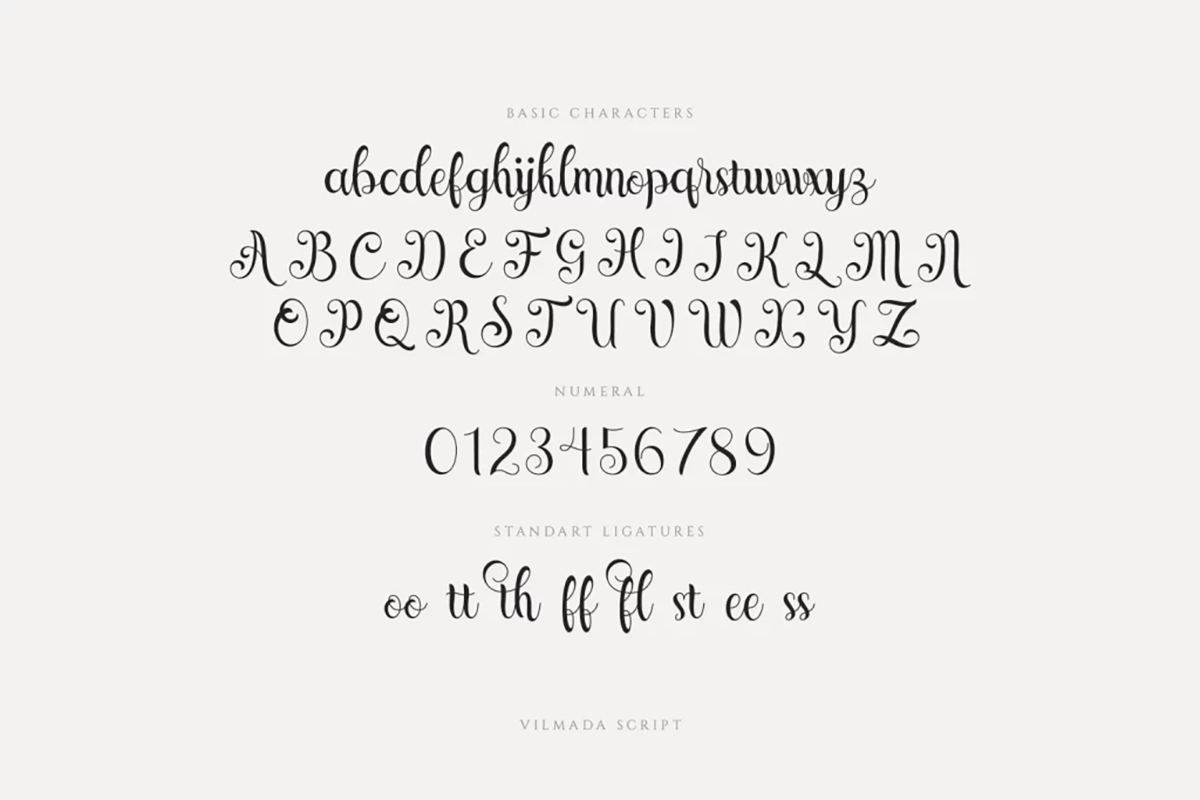 BASIC CHARACTERS
abcdefghijklmnopqrstuvwxyz
A B C D E F G H I J K L M N
O P Q R S T U V W X Y Z
NUMERAL
0123456789
STANDART LIGATURES
oo tt th ff fl st ee ss
VILMADA SCRIPT